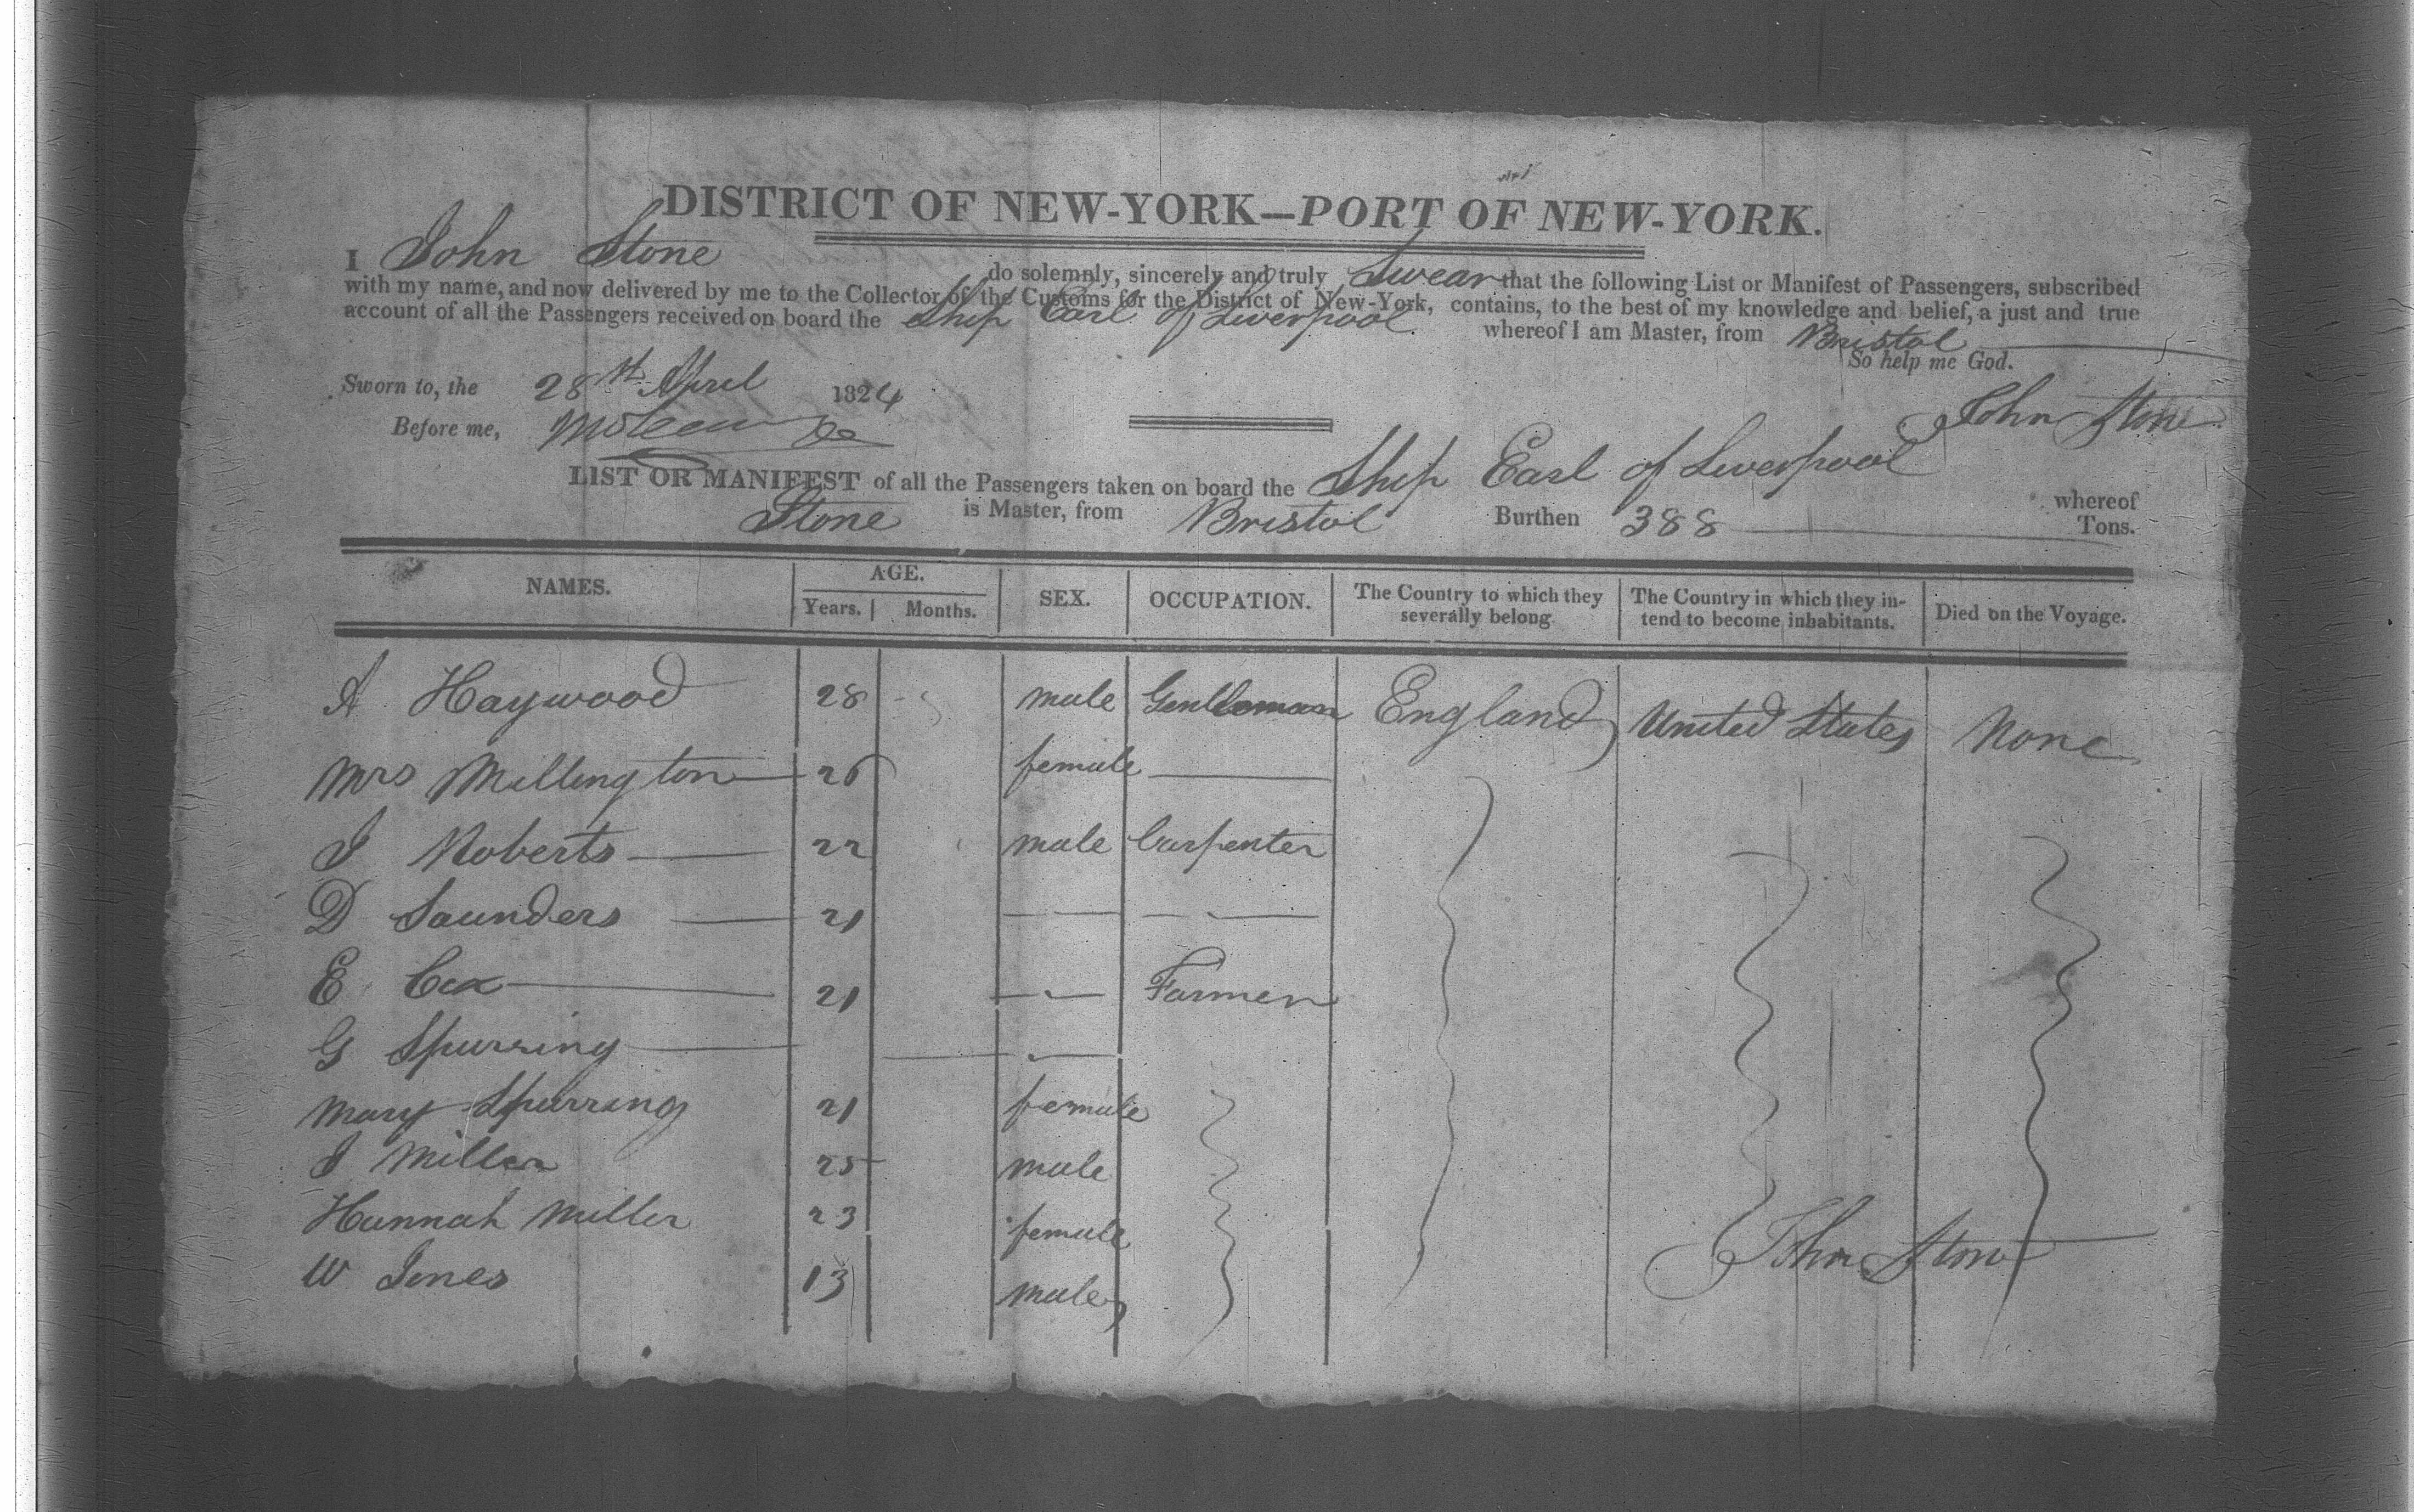 DISTRICT OF NEW-YORK—PORT OF NEW-YORK.
I John Stone do solemnly, sincerely and truly Swear that the following List or Manifest of Passengers, subscribed
with my name, and now delivered by me to the Collector of the Customs for the District of New-York, contains, to the best of my knowledge and belief, a just and true
account of all the Passengers received on board the Ship Earl of Liverpool whereof I am Master, from Bristol
So help me God.
Sworn to, the 28th April 1824
John Stone
Before me,
LIST OR MANIFEST of all the Passengers taken on board the Ship Earl of Liverpool whereof
Stone is Master, from Bristol Burthen 388 Tons.
NAMES. AGE. Years. Months. SEX. OCCUPATION. The Country to which they severally belong. The Country in which they intend to become inhabitants. Died on the Voyage.
A Haywood 28 male Gentleman England United States None
Mrs Millington 26 female
J Roberts 22 male Carpenter
D Saunders 21
E Cox 21 Farmer
G Spurring
Mary Spurring 21 female
J Miller 25 male
Hannah Miller 23 female
W Jones 13 male
John Stone